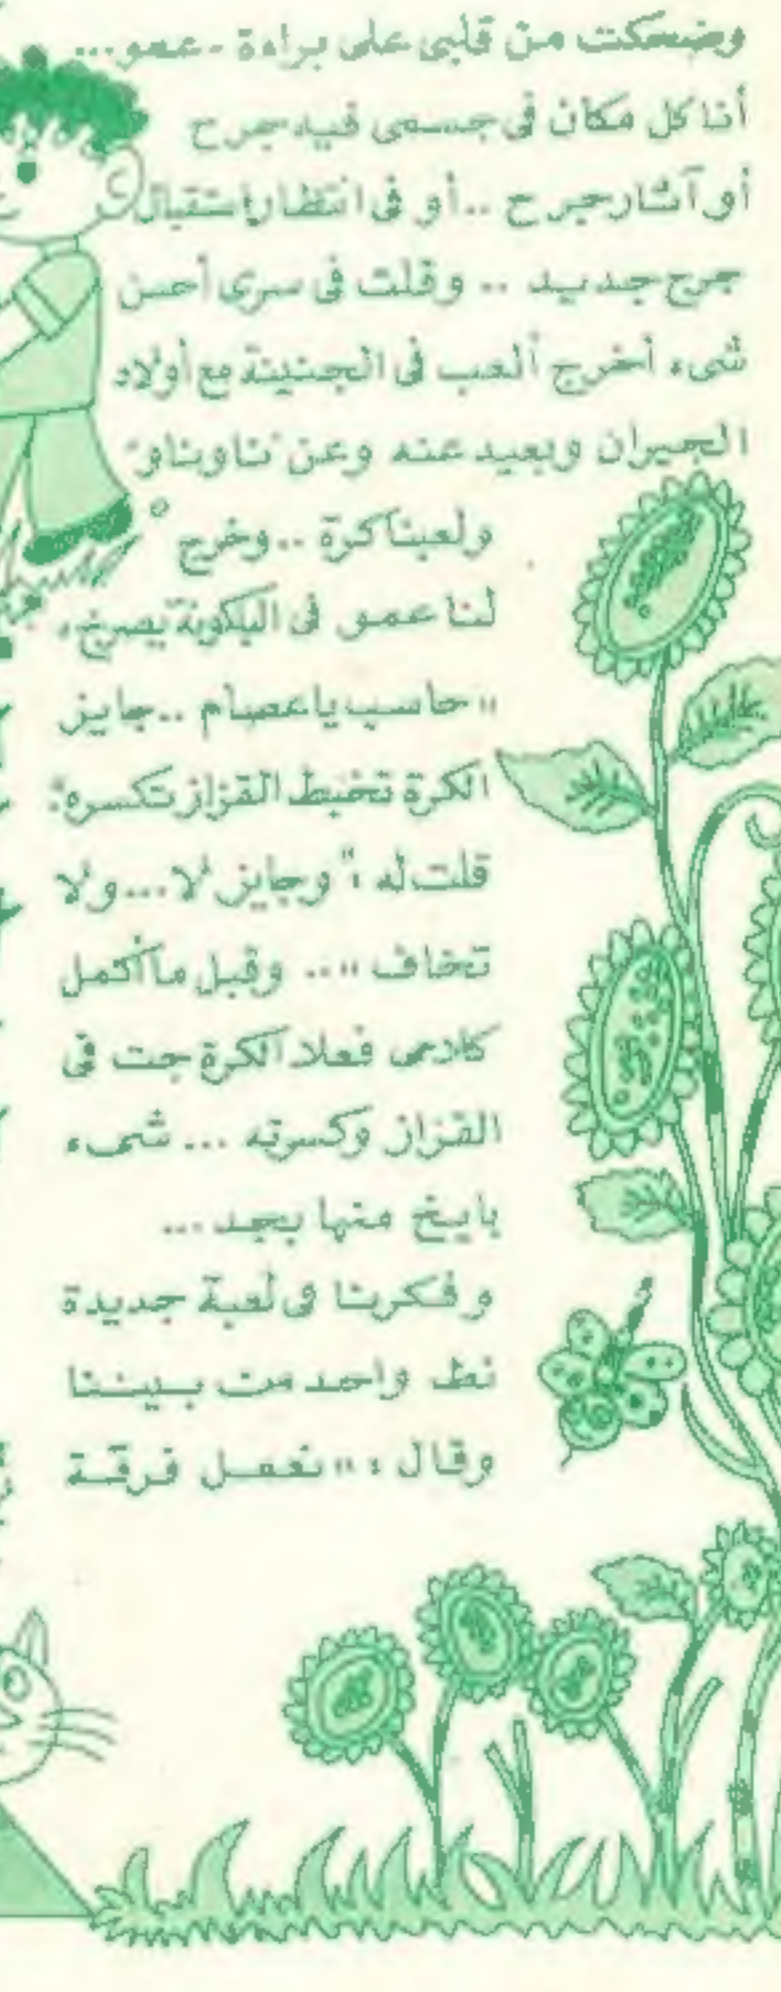 وضحكت من قلبى على براءة - عمو...
أنا كل مكان فى جسمى فيه جرح
أو آثار جرح .. أو فى انتظار استقبال
جرح جديد .. وقلت فى سرى أحسن
شىء أخرج ألعب فى الجنينة مع أولاد
الجيران وبعيد عنه وعن "ناوناو"
ولعبنا كرة .. وخرج
لنا عمو فى البلكونة يصرخ،
"حاسب يا عصام .. جايز
الكرة تخبط القزاز تكسره".
قلت له : "وجايز لا ... ولا
تخاف" .. وقبل ما أكمل
كلامى فعلا الكرة جت فى
القزاز وكسرته ... شىء
بايخ منها بجد ...
وفكرنا فى لعبة جديدة
نط واحد من بيننا
وقال : "نعمل فرقة